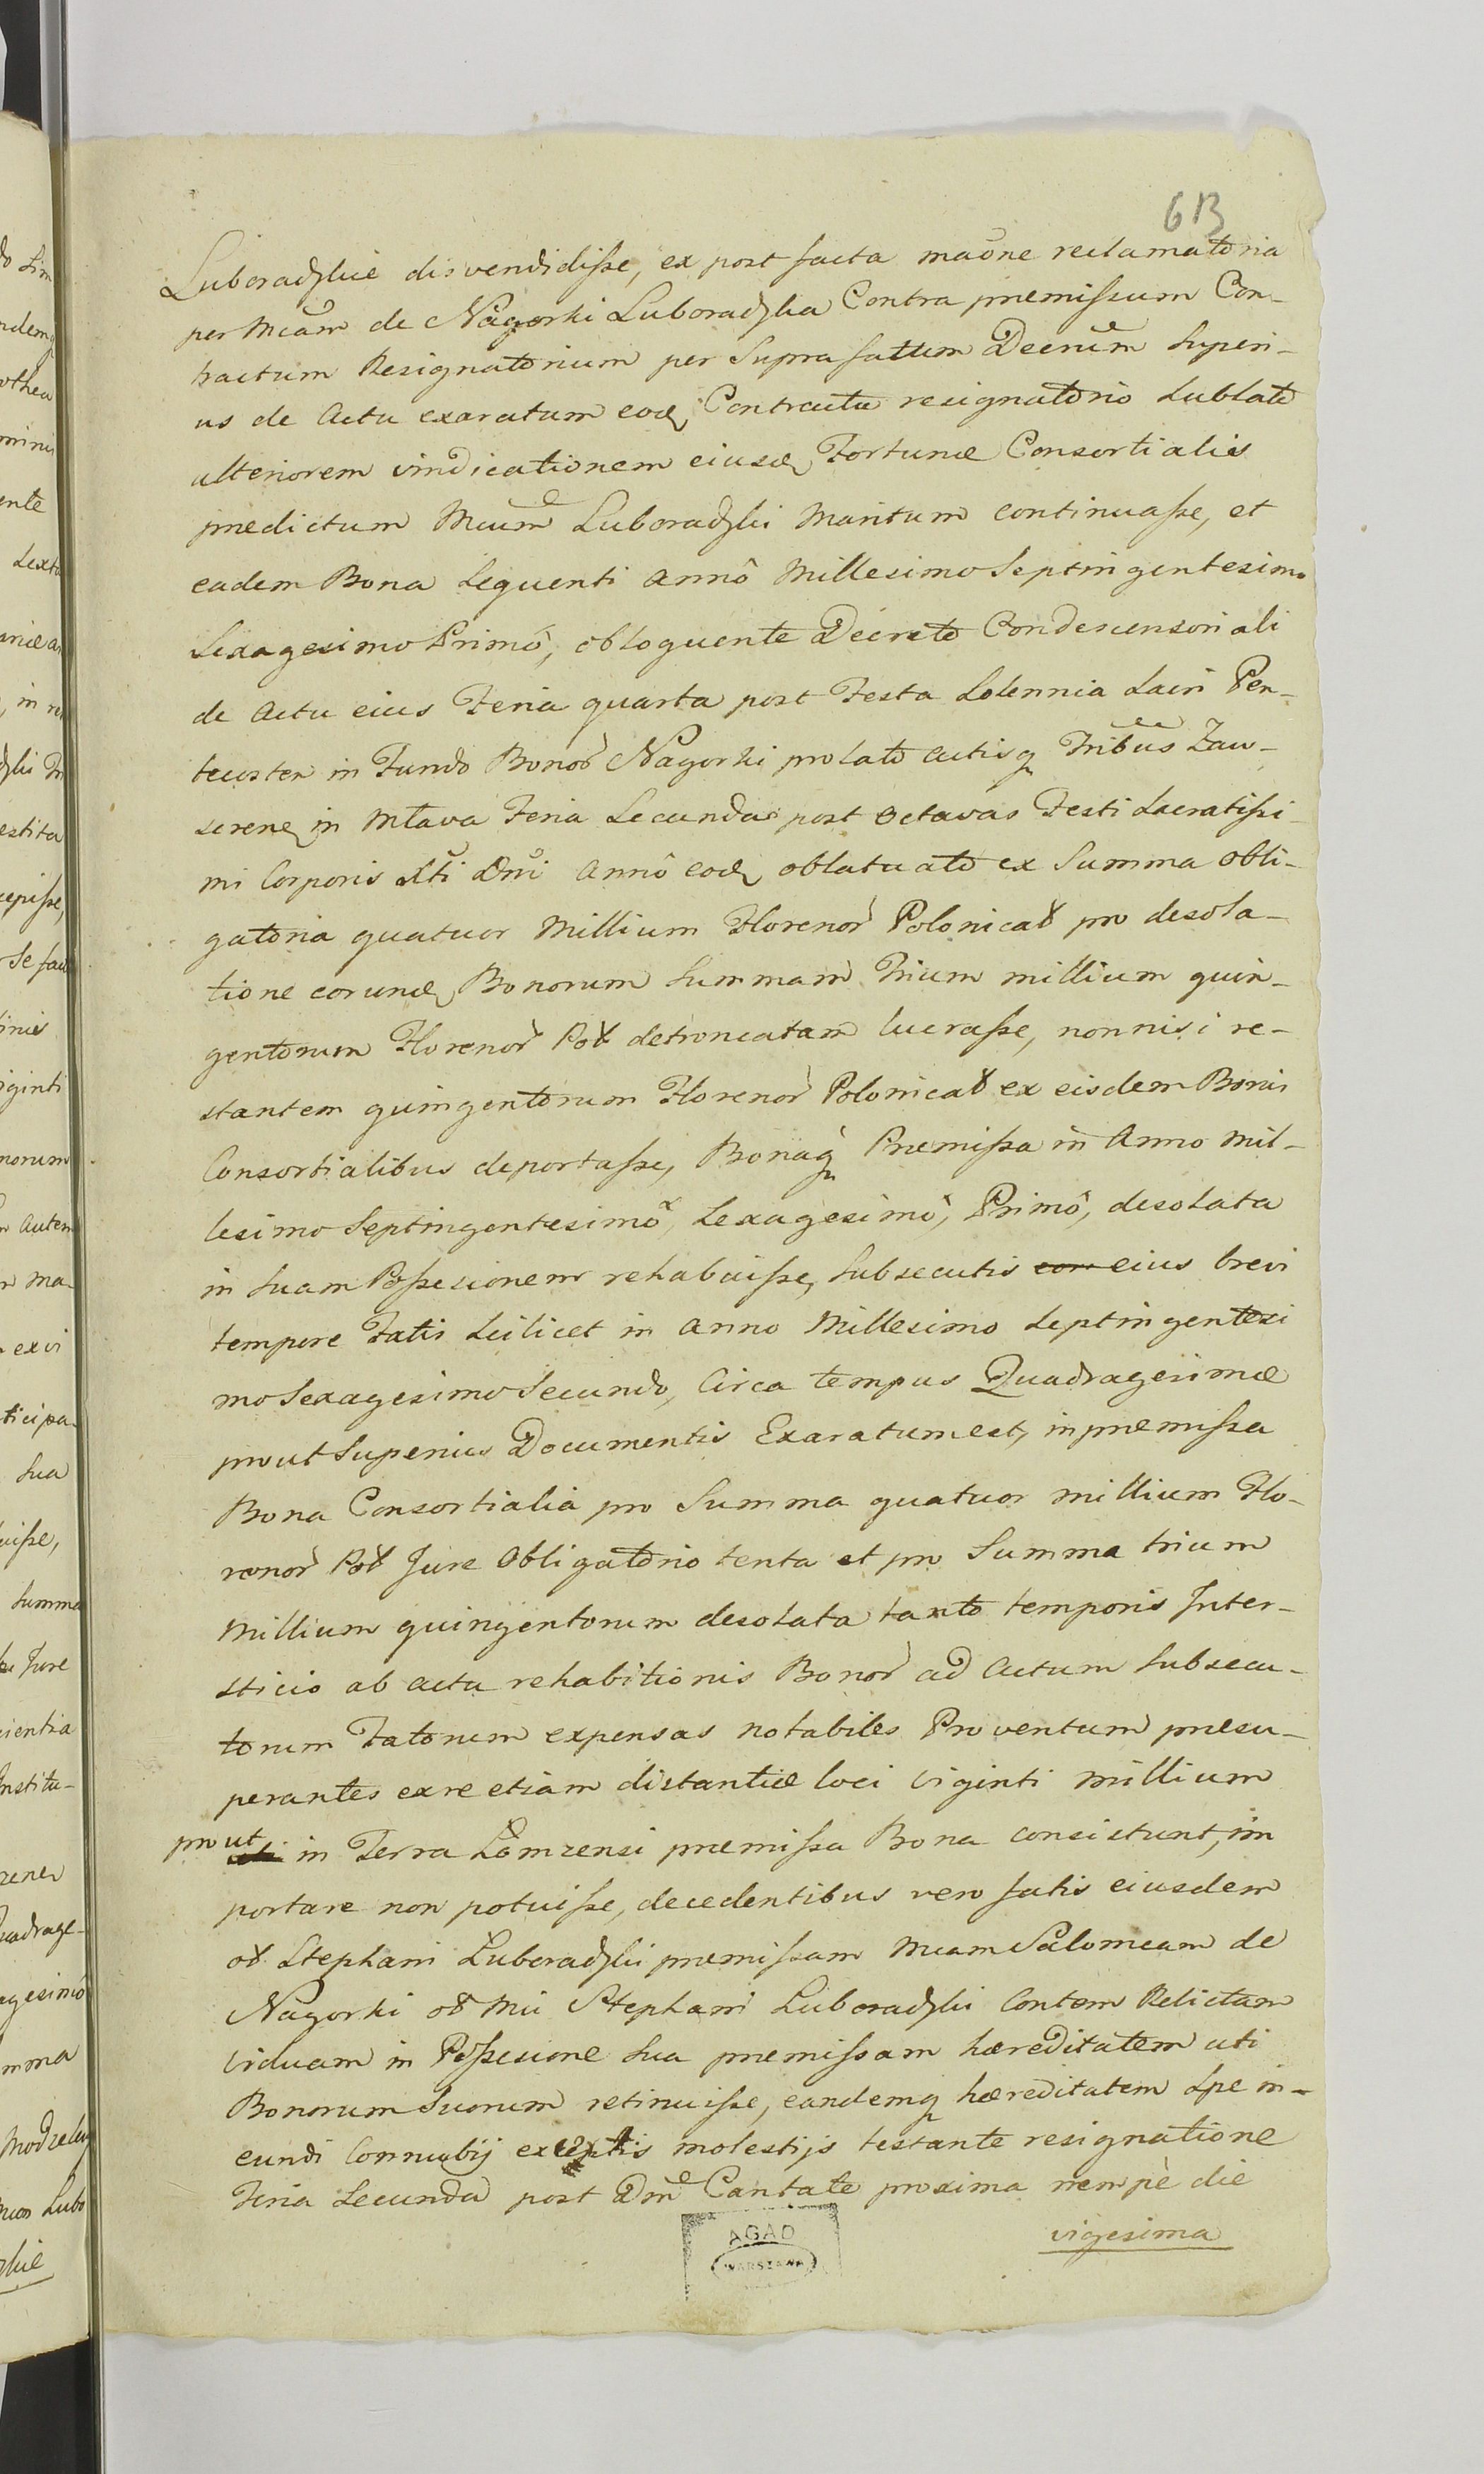 613
Luboradzkie disvendidisse, ex post facta maõne reclamatoria
per Mcam de Nagorki Luboradzka Contra præmissum Con-
tractum Resignatorium per Suprafattum Decrũm Superi-
us de Actu exaratum eoq Contractu resignatorio Sublato
ulteriorem vindicationem eiusq Fortunæ Consortialis
prædictum Mcum Luboradzki Maritum continuasse, et
eadem Bona Sequenti Annô Millesimo Septingentesimo
Sexagesimo Primô, obloquente Decreto Condescensoriali
de Actu eius Feria quarta post Festa Solennia Sacri Pen-
tecostes in Fundo Bonor Nagorki prolato Actisq Tribus Zaw-
screne in Mlava Feria Secunda post Octavas Festi Sacratissi-
mi Corporis Xti Dni Annô eoq oblatuato ex Summa Obli-
gatoria quatuor Millium Florenor Polonical pro desola-
tione eorunq Bonorum Summam Trium millium quin-
gentorum Florenor Pol detroncatam lucrasse, nonnisi re-
stantem quingentorum Florenor Polonical ex eisdem Bonis
Consortialibus deportasse, Bonaq Præmissa in Anno Mil-
lesimo Septingentesimô, Sexagesimô, Primô, desolata
in Suam Possesionem rehabuisse, Subsecutis eius brevi
tempore Fatis Scilicet in Anno Millesimo Septingentesi
mo Sexagesimo Secundo, Circa tempus Quadragesimæ
prout Superius Documentis Exaratum est, in præmissa
Bona Consortialia pro Summa quatuor millium Flo-
renor Pol Jure Obligatorio tenta et pro Summa trium
Millium quingentorum desolata tanto temporis Inter-
sticio ab actu rehabitionis Bonor ad Actum Subsecu-
torum Fatorum expensas notabiles Proventum præsu-
perantes ex re etiam distantiæ loci Viginti Millium
prout in Terra Lomzensi præmissa Bona consistunt, im
portare non potuisse, decedentibus vero fatis eiusdem
ol Stephani Luboradzki præmissam Mcam Salomeam de
Nagorki ol Mci Stephani Luboradzki Contem Relictam
Viduam in Possesione Sua præmissam hæreditatem uti
Bonorum Suorum retinuisse, eandemq hæreditatem Spe in-
eundi Connubij exceptis molestijs testante resignatione
Feria Secunda post Dm̃ Cantate proxima nempè die
vigesima
AGAD
WARSZAWA